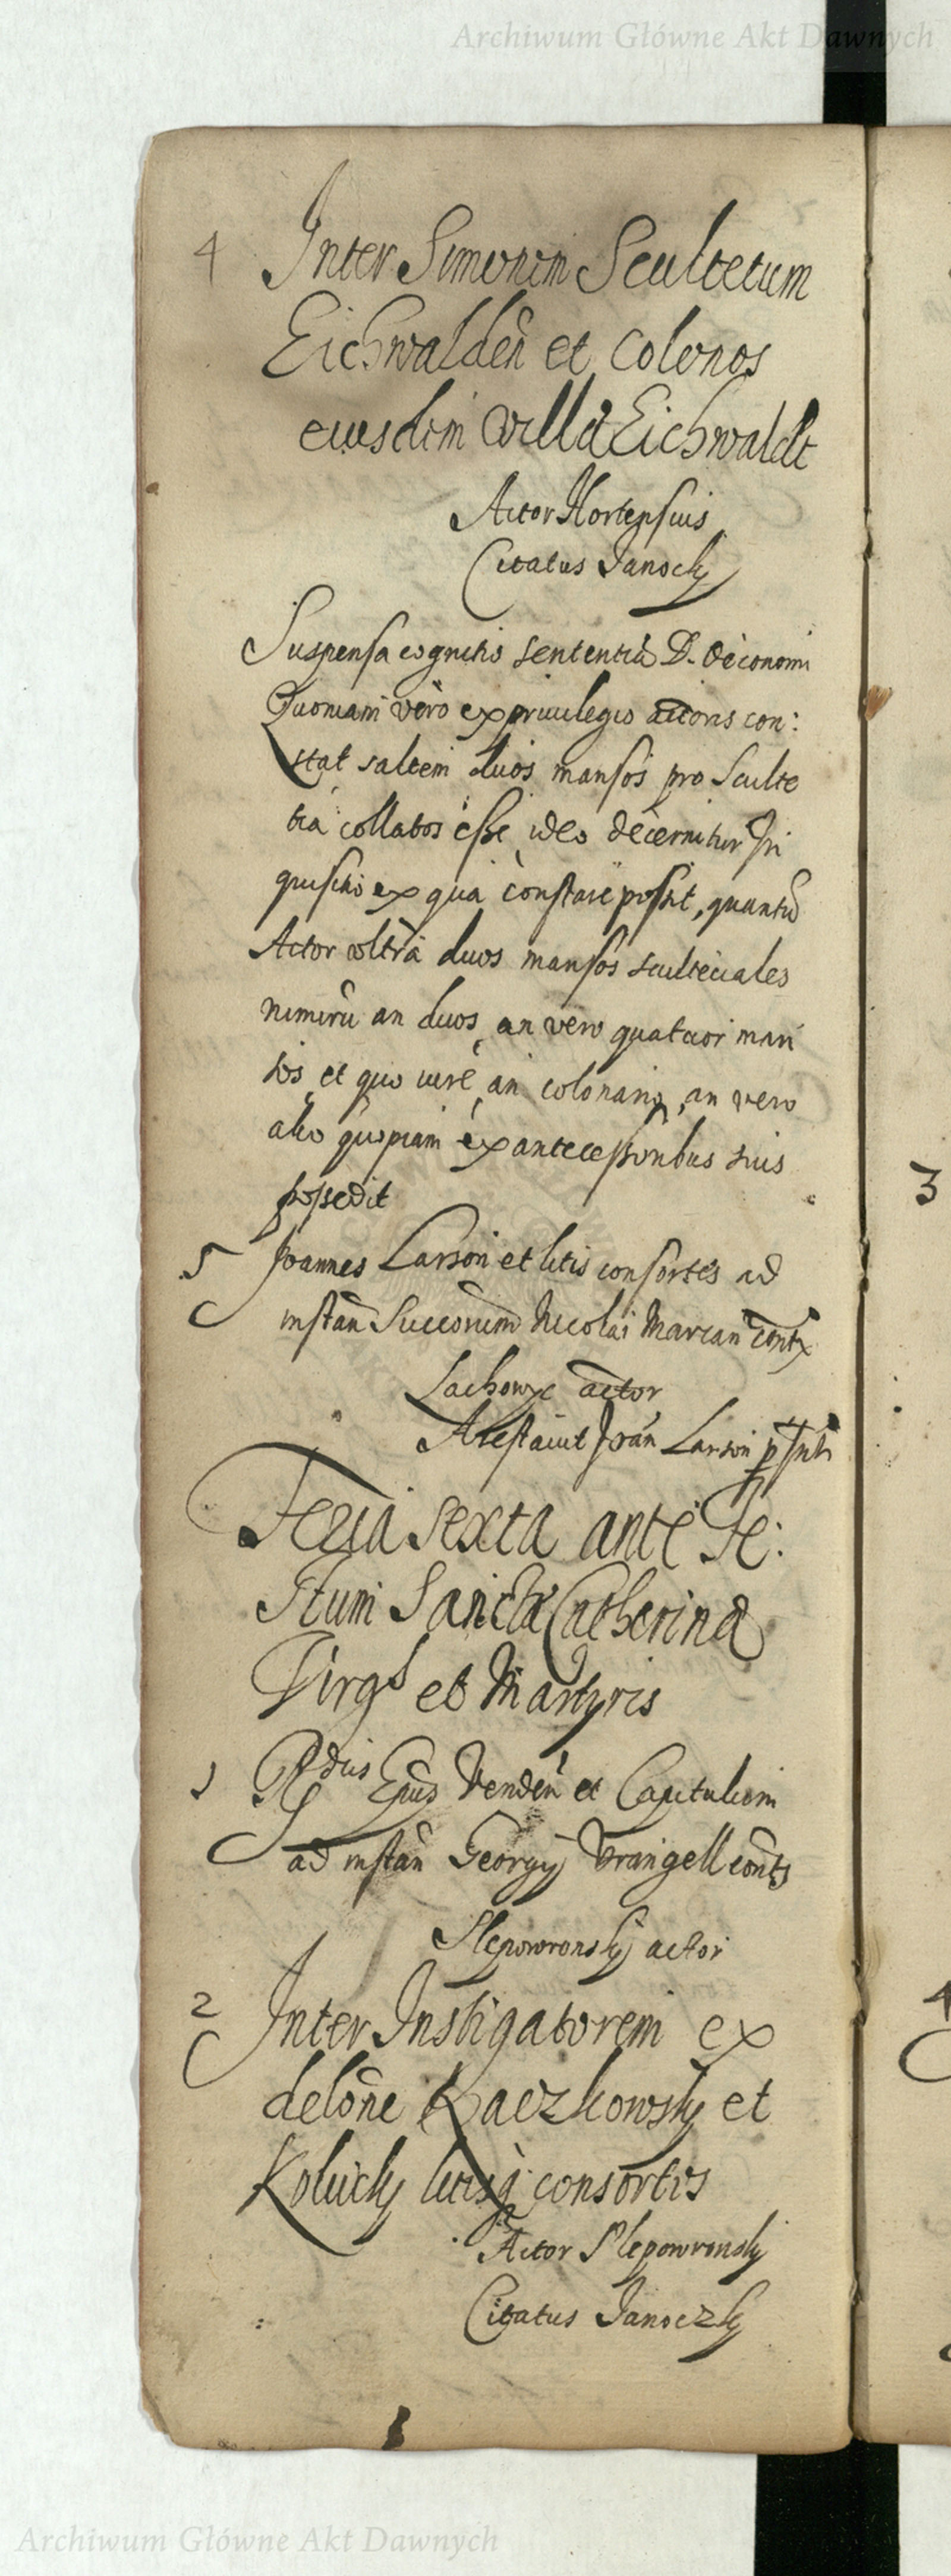 Archiwum Główne Akt Dawnych
4 Inter Simonem Scultetum
Eichwalden et Colonos
eiusdem Villæ Eichwaldt
Actor Hortensius
Citatus Janocky
Suspensa cognitio sententiâ D. Oeconomi
Quoniam vèro ex priuilegio actoris con:
stat saltem duos mansos pro Sculte
tia collatos esse ideo decernitur In
quisitio ex qua constare possit, quantũ
Actor vltra duos mansos scultetiales
nimirũ an duos, an vero quatuor man
sos et quo iure, an colonario, an vero
alio quopiam ex antecessoribus suis
possedit
3
5 Joannes Larson et litis consortes ad
instan̄ Succorum Nicolai Marcan
Lachowyc actor
Joan̄ Larson
Feria sexta ante Fe:
stum Sanctæ Catherinæ
Virgs et Martyris
1 Rdus Epūs Venden̄ et Capitulum
ad instan̄ Georgy Vrangell
Slepowronsky actor
2 Inter Instigatorem ex
delōne Raczkowsky et
Kolucky litisq consortes
4
Actor Slepowronsky
Citatus Janoczky
Archiwum Główne Akt Dawnych